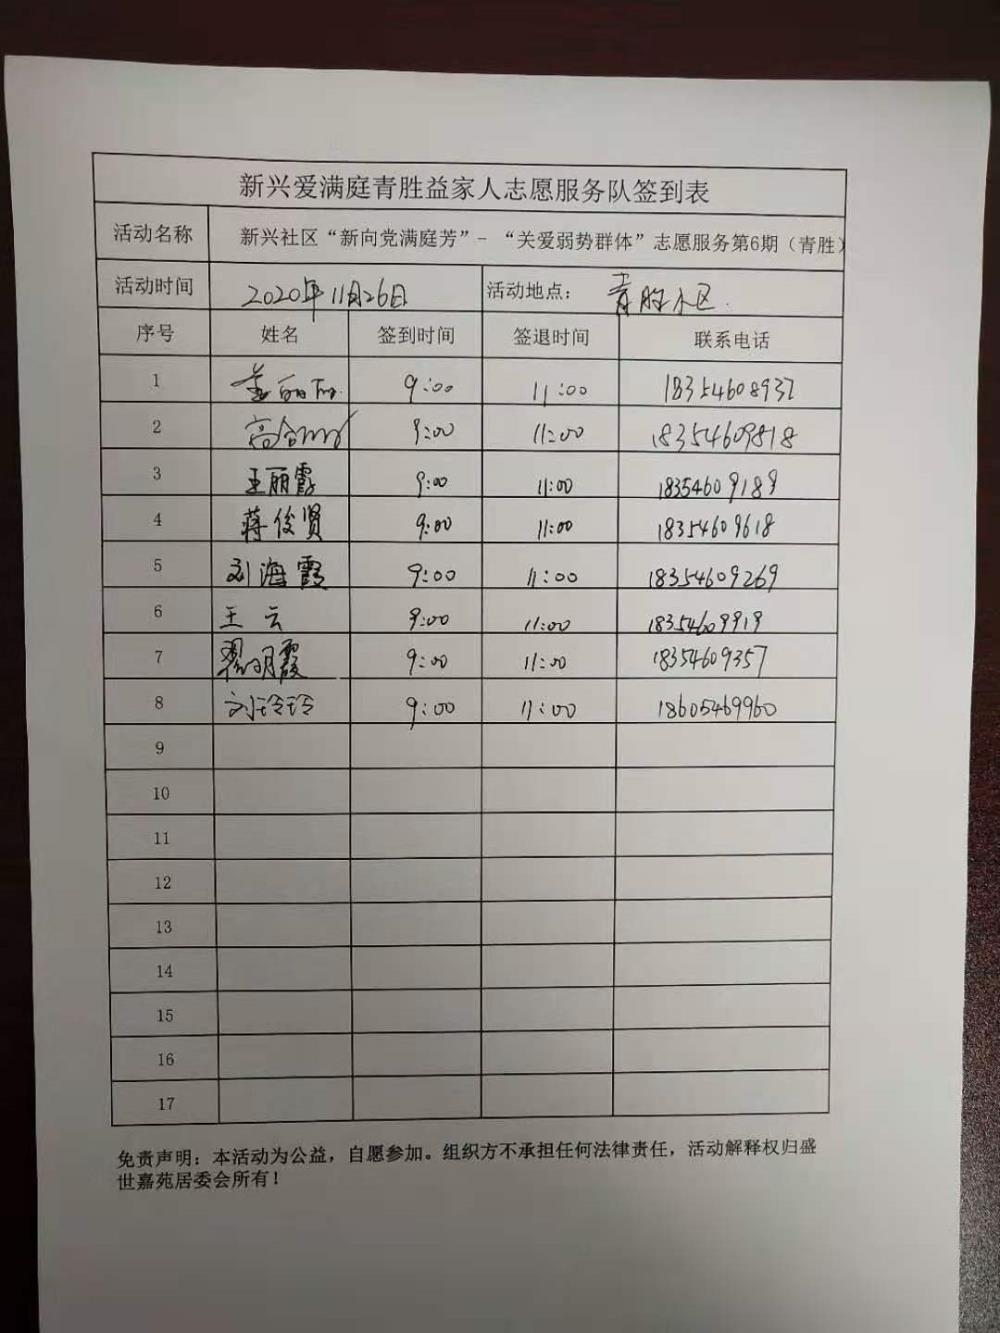 新兴爱满庭青胜益家人志愿服务队签到表
活动名称 新兴社区“新向党满庭芳”-“关爱弱势群体”志愿服务第6期（青胜）
活动时间 2020年11月26日 活动地点： 青胜小区.
序号 姓名 签到时间 签退时间 联系电话
1 9:00 11:00 18354608937
2 9:00 11:00 18354609818
3 王丽霞 9:00 11:00 18354609189
4 蒋俊贤 9:00 11:00 18354609618
5 刘海霞 9:00 11:00 18354609269
6 王云 9:00 11:00 18354609919
7 翟明霞 9:00 11:00 18354609357
8 刘玲玲 9:00 11:00 18605469960
9
10
11
12
13
14
15
16
17
免责声明：本活动为公益，自愿参加。组织方不承担任何法律责任，活动解释权归盛
世嘉苑居委会所有！